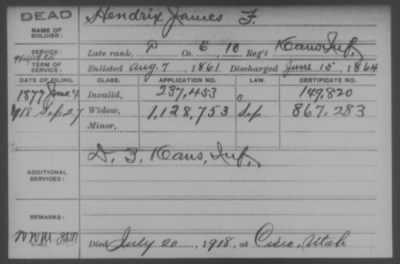 DEAD
Hendrix James F.
NAME OF SOLDIER:
SERVICE: Late rank, P Co. E, 10 Reg't Kans Inf.
TERM OF SERVICE: Enlisted Aug. 7, 1861. Discharged June 15, 1864
DATE OF FILING. CLASS. APPLICATION NO. LAW. CERTIFICATE NO.
1877 June 4 Invalid, 237,453 149,820
1918 Sep 27 Widow, 1,128,753 Sep 867,283
Minor,
D. 3. Kans, Inf.
ADDITIONAL SERVICES:
REMARKS:
Died July 20 1918, at Utah